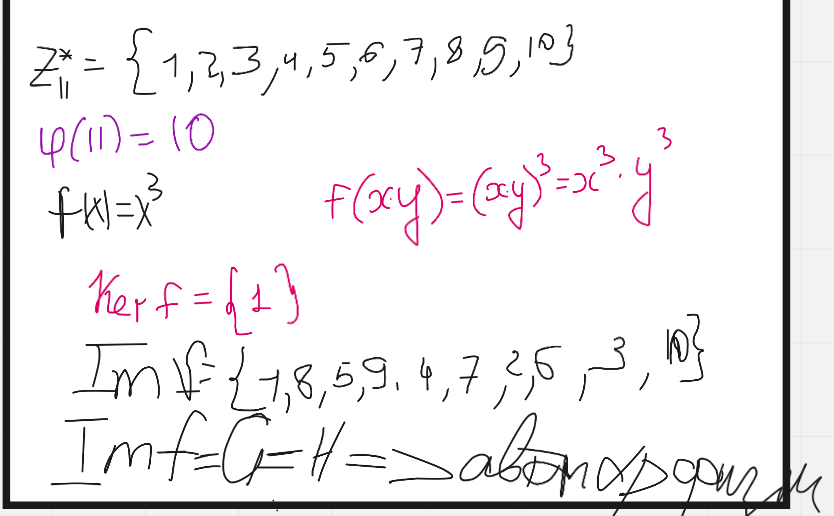 Z*₁₁ = {1,2,3,4,5,6,7,8,9,10}
φ(11) = 10
f(x)=x³ F(x·y)=(x·y)³=x³·y³
Ker f = {1}
Im f = {1,8,5,9.4,7,2,6,3,10}
Im f = G = H => автоморфизм